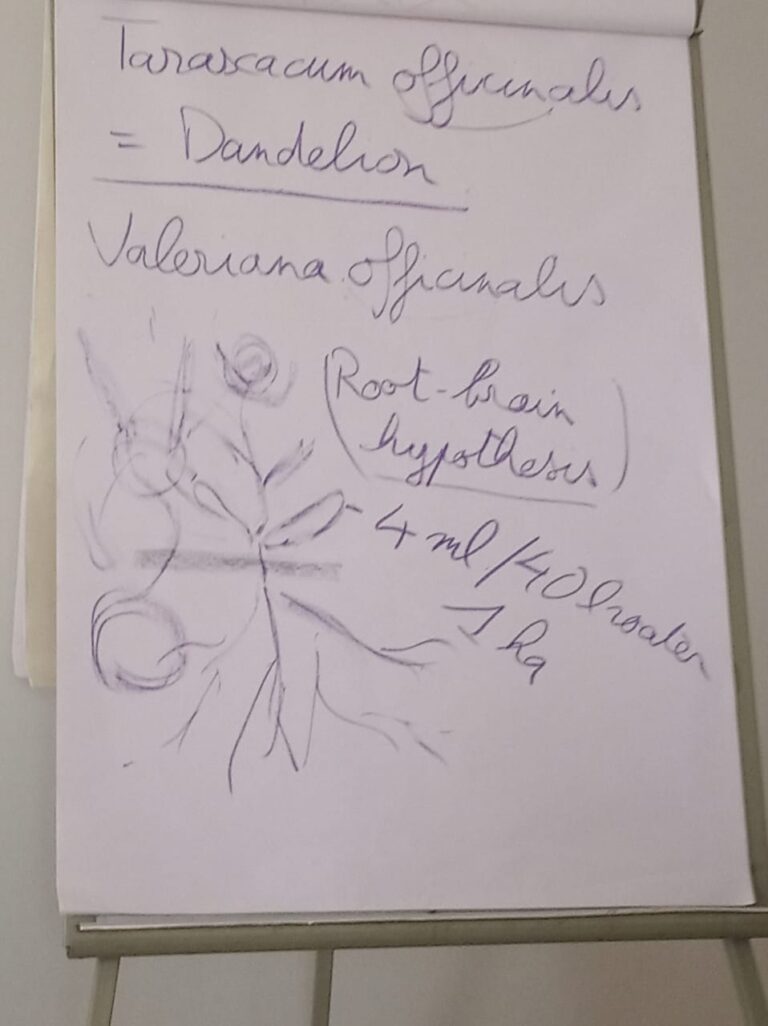 Taraxacum officinalis
= Dandelion
Valeriana officinalis
(Root-brain
hypothesis)
4 ml/40 l water
1 ha